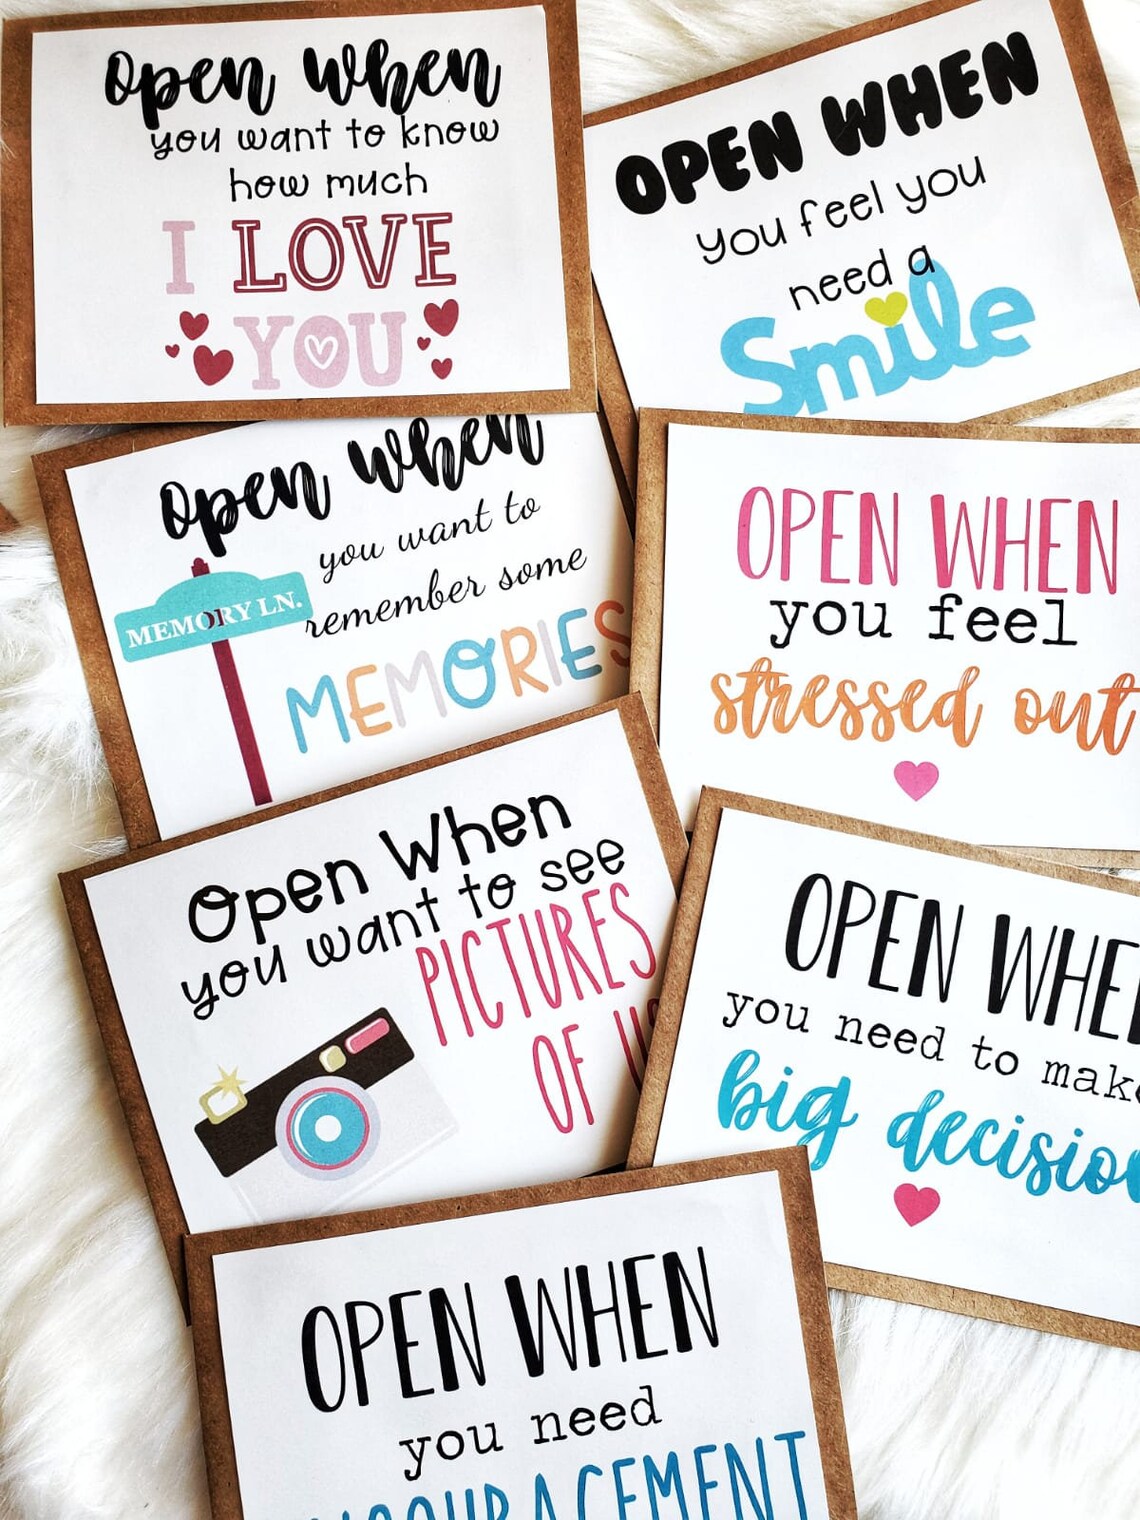 open when
you want to know
how much
I LOVE
YOU
OPEN WHEN
you feel you
need a
Smile
open when
you want to
remember some
MEMORIES
MEMORY LN.
OPEN WHEN
you feel
stressed out
Open When
you want to see
PICTURES
OF US
OPEN WHE
you need to make
big decisio
OPEN WHEN
you need
ENCOURAGEMENT